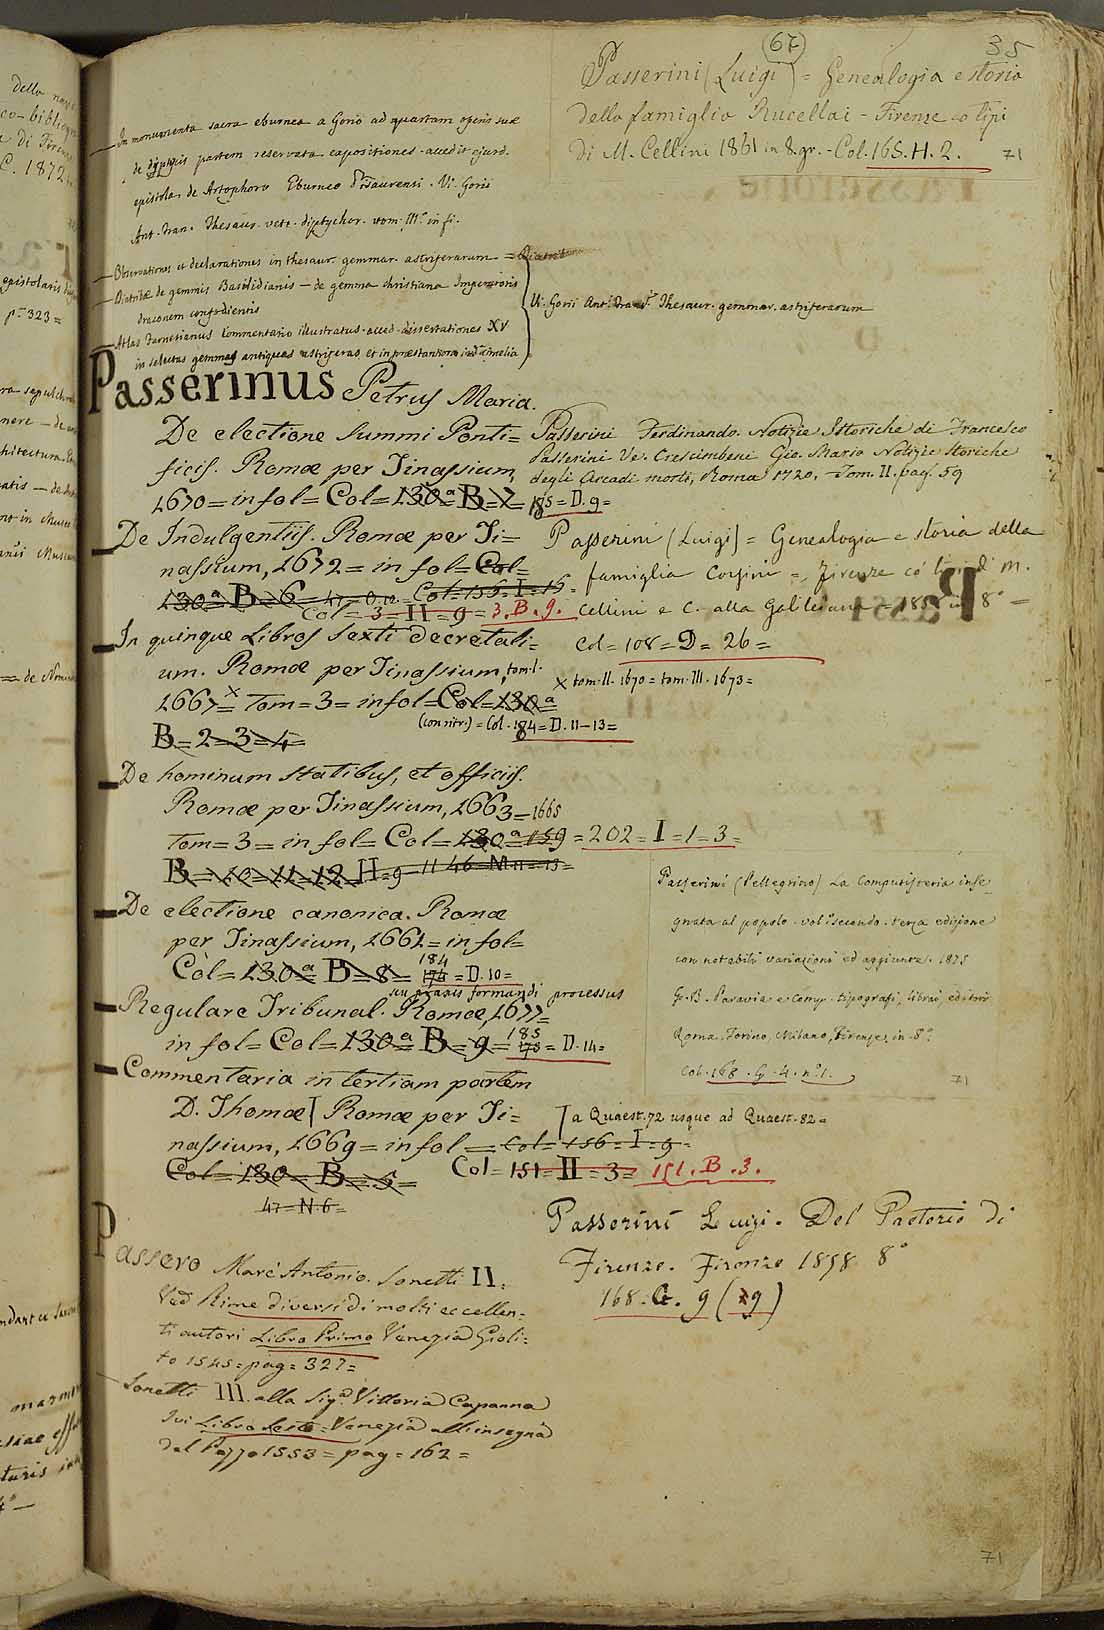 67
35
Passerini (Luigi) = Genealogia e storia
della famiglia Rucellai - Firenze co tipi
di M. Cellini 1861 in 8. gr. - Col. 165. H. 2.
71
In monumenta sacra eburnea a Gorio ad quartam operis suæ
de diptycis partem reservata expositiones - accedit ejusd.
epistola de Artophoro Eburneo Pisaurensi. Vi. Gorii
Ant. Fran. Thesaur. vete. diptychor. tom. III. in fi.
Observationes et declarationes in thesaur. gemmar. astriferarum =
Diatribæ de gemmis Basilidianis - de gemma christiana Imperatoris
draconem confodientis
Atlas Farnesianus Commentario illustratus - acced. dissertationes XV
in selectas gemmas antiquas astriferas et in præstantiora
Vi. Gorii Ant. Fra. Thesaur. gemmar. astriferarum
Passerinus Petrus Maria.
De electione Summi Ponti=
ficis. Romæ per Tinassium,
1670 = in fol = Col = 130ª B = 7 = 185 = D. 9 =
De Indulgentiis. Romæ per Ti=
nassium, 1672 = in fol = Col =
130ª B = 6 = 47 = O. 10 = Col = 156 = I = 15 =
Col = 3 = II = 9 = 3. B. 9.
In quinque Libros Sexti Decretali=
um. Romæ per Tinassium, tom. I.
1667 = × Tom = 3 = in fol = Col = 130ª
(con ritr.) = Col. 184 = D. 11 - 13 =
B = 2 = 3 = 4 =
× tom. II. 1670 = tom. III. 1673 =
De hominum statibus, et officiis.
Romæ per Tinassium, 1663 = 1665
Tom = 3 = in fol = Col = 130ª 159 = 202 = I = 1 = 3 =
B = 10 = 11 = 12 H = 9 11 46 = M 11 = 13 =
De electione canonica. Romæ
per Tinassium, 1661 = in fol =
184
Col = 130ª B = 8 = 174 = D. 10 =
seu praxis formandi processus
Regulare Tribunal. Romæ, 1677 =
185
in fol = Col = 130ª B = 9 = 175 = D. 14 =
Commentaria in tertiam partem
D. Thomæ [ Romæ per Ti=
[ a Quaest. 72 usque ad Quaest. 82 =
nassium, 1669 = in fol = Col = 156 = I = 9 =
Col = 130 = B = 5 = Col = 151 = II = 3 = 151. B. 3.
47 = N. 6 =
Passero Marc'Antonio. Sonetti II.
Ved. Rime diversi di molti eccellen=
ti autori Libro Primo Venezia Gioli=
to 1545 = pag = 327 =
Sonetti III. alla Sigª Vittoria Capanna
Ivi Libro Sesto = Venezia all'insegna
del Pozzo 1553 = pag = 162 =
Passerini Ferdinando. Notizie Istoriche di Francesco
Passerini Ve. Crescimbeni Gio. Mario Notizie Storiche
degli Arcadi morti, Roma 1720, Tom. II. pag. 59
Passerini (Luigi) = Genealogia e storia della
famiglia Corsini =, Firenze co' tipi di M.
Cellini e C. alla Galileiana = 1858 in 8° =
Col = 108 = D = 26 =
Passerini (Pellegrino) La Computisteria inse
gnata al popolo - vol. secondo - terza edizione
con notabili variazioni ed aggiunte. 1875
G. B. Paravia e Comp. tipografi, librai, editori
Roma, Torino, Milano, Firenze, in - 8°
Col. 168. G. 4. n° 1.
71
Passerini Luigi. Del Pretorio di
Firenze. Firenze 1858 8°
168. G. 9 (29)
71